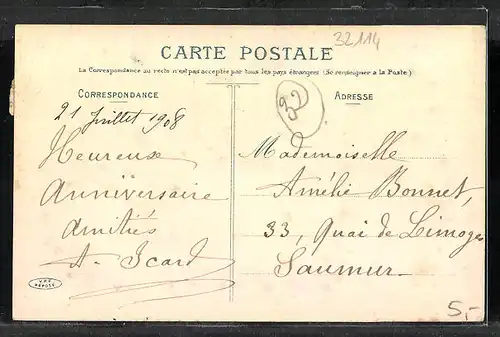 32114
CARTE POSTALE
La Correspondance au recto n'est pas acceptée par tous les pays étrangers (Se renseigner a la Poste.)
CORRESPONDANCE
21 Juillet 1908
Heureuse
Anniversaire
Amitiés
A. Icard
32
ADRESSE
Mademoiselle
Amélie Bonnet,
33, Quai de Limoges
Saumur
DÉPOSÉ
5,-